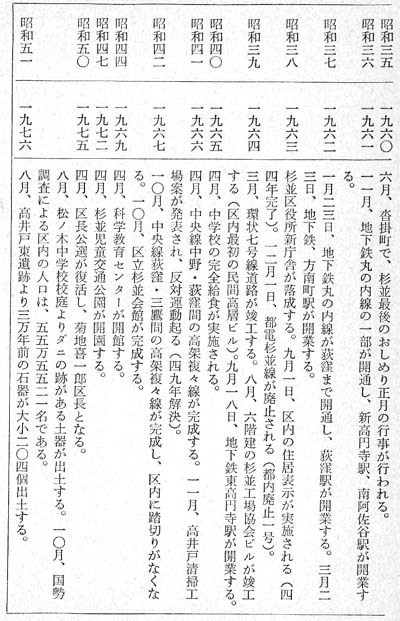 昭和三五 一九六〇 六月、沓掛町で、杉並最後のおしめり正月の行事が行われる。
昭和三六 一九六一 一一月、地下鉄丸の内線の一部が開通し、新高円寺駅、南阿佐谷駅が開業す
る。
昭和三七 一九六二 一月二三日、地下鉄丸の内線が荻窪まで開通し、荻窪駅が開業する。三月二
三日、地下鉄、方南町駅が開業する。
昭和三八 一九六三 杉並区役所新庁舎が落成する。九月一日、区内の住居表示が実施される（四
四年完了）。一二月一日、都電杉並線が廃止される（都内廃止一号）。
昭和三九 一九六四 三月、環状七号線道路が竣工する。八月、六階建の杉並工場協会ビルが竣工
する（区内最初の民間高層ビル）。九月一八日、地下鉄東高円寺駅が開業する。
昭和四〇 一九六五 四月、中学校の完全給食が実施される。
昭和四一 一九六六 四月、中央線中野・荻窪間の高架複々線が完成する。一一月、高井戸清掃工
場案が発表され、反対運動起る（四九年解決）。
昭和四二 一九六七 一〇月、中央線荻窪・三鷹間の高架複々線が完成し、区内に踏切りがなくな
る。一〇月、区立杉並会館が完成する。
昭和四四 一九六九 四月、科学教育センターが開館する。
昭和四七 一九七二 四月、杉並児童交通公園が開園する。
昭和五〇 一九七五 四月、区長公選が復活し、菊地喜一郎区長となる。
八月、松ノ木中学校校庭よりダニの跡がある土器が出土する。一〇月、国勢
調査による区内の人口は、五五万五五二一名である。
昭和五一 一九七六 八月、高井戸東遺跡より三万年前の石器が大小二〇四個出土する。